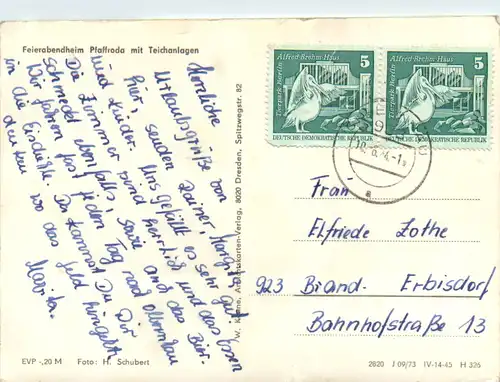 Feierabendheim Pfaffroda mit Teichanlagen
Herzliche
Urlaubsgrüße von
hier senden Rainer, Margita
und Kinder. Uns gefällt es sehr gut.
Die Zimmer sind herrlich und das Essen
schmeckt ebenfalls, sowie auch das Bier.
Wir fahren fast jeden Tag nach Olbernhau
in die Eisdiele. Da kannst Du Dir
denken wo das Geld hingeht.
W. Krenke, Ansichtskarten-Verlag, 8020 Dresden, Spitzwegstr. 82
Alfred-Brehm-Haus 5
Tierpark Berlin
DEUTSCHE DEMOKRATISCHE REPUBLIK
Alfred-Brehm-Haus 5
Tierpark Berlin
DEUTSCHE DEMOKRATISCHE REPUBLIK
Frau
Elfriede Zothe
923 Brand-Erbisdorf
Bahnhofstraße 13
EVP -,20 M Foto: H. Schubert
2820 I 09/73 IV-14-45 H 326